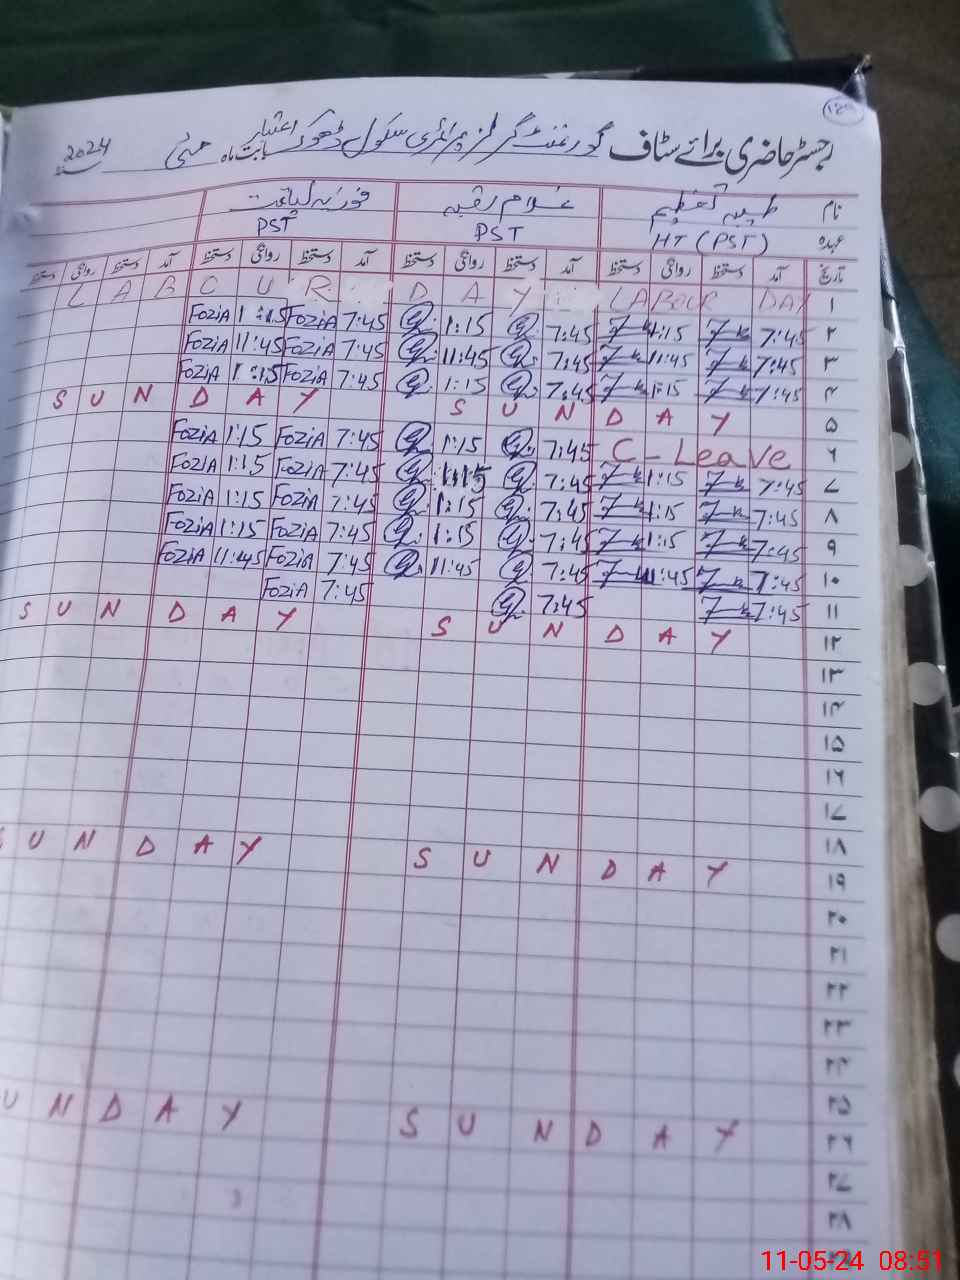 189
رجسٹر حاضری برائے سٹاف گورنمنٹ گرلز پرائمری سکول ڈھوک اعتبار بابت ماہ مئی 2024
نام طیبہ تعظیم غلام رقیہ فوزیہ لیاقت
عہدہ HT (PST) PST PST
تاریخ آمد دستخط روانگی دستخط آمد دستخط روانگی دستخط آمد دستخط روانگی دستخط آمد دستخط روانگی دستخط
L A B O U R D A Y LABOUR DAY ۱
FOZIA 1:15 FOZIA 7:45 1:15 7:45 1:15 7:45 ۲
FOZIA 11:45 FOZIA 7:45 11:45 7:45 11:45 7:45 ۳
FOZIA 1:15 FOZIA 7:45 1:15 7:45 1:15 7:45 ۴
S U N D A Y S U N D A Y ۵
FOZIA 1:15 FOZIA 7:45 1:15 7:45 C-Leave ۶
FOZIA 1:15 FOZIA 7:45 1:15 7:45 1:15 7:45 ۷
FOZIA 1:15 FOZIA 7:45 1:15 7:45 1:15 7:45 ۸
FOZIA 1:15 FOZIA 7:45 1:15 7:45 1:15 7:45 ۹
FOZIA 11:45 FOZIA 7:45 11:45 7:45 11:45 7:45 ۱۰
FOZIA 7:45 7:45 7:45 ۱۱
S U N D A Y S U N D A Y ۱۲
۱۳
۱۴
۱۵
۱۶
۱۷
۱۸
U N D A Y S U N D A Y ۱۹
۲۰
۲۱
۲۲
۲۳
۲۴
۲۵
U N D A Y S U N D A Y ۲۶
۲۷
۲۸
۲۹
11-05-24 08:51